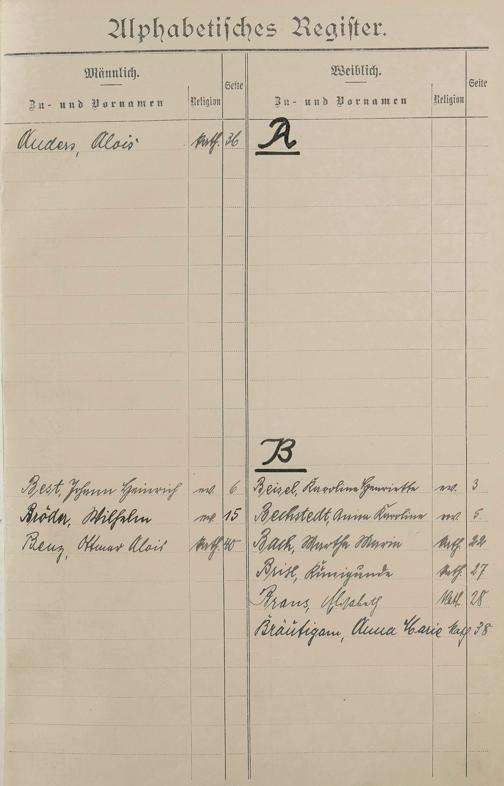 Alphabetisches Register.
Männlich.
Zu- und Vornamen
Religion
Seite
Weiblich.
Zu- und Vornamen
Religion
Seite
A
Anders, Alois kath. 36
B
Best, Johann Heinrich ev. 6
Beisel, Karoline Henriette ev. 3
Bröder, Wilhelm ev. 15
Bechstedt, Anna Karoline ev. 5
Benz, Ottmar Alois kath. 40
Bach, Martha Maria kath. 22
Kunigunde kath. 27
Elisabeth kath. 28
Bräutigam, Anna Marie kath. 38